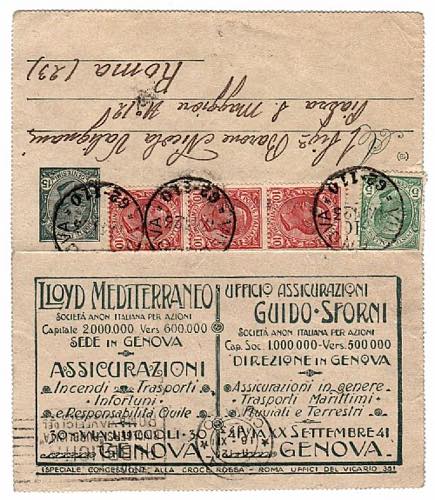 Al Sigr Barone Nicola
Piazza S. Maggiore No 121
Roma (23)
LLOYD MEDITERRANEO
SOCIETÀ ANON ITALIANA PER AZIONI
Capitale 2.000.000 Vers. 600.000
SEDE IN GENOVA
ASSICURAZIONI
Incendi Trasporti
Infortuni
e Responsabilità Civile
GENOVA
UFFICIO ASSICURAZIONI
GUIDO SFORNI
SOCIETÀ ANON ITALIANA PER AZIONI
Cap. Soc. 1.000.000-Vers. 500.000
DIREZIONE IN GENOVA
Assicurazioni in genere
Trasporti Marittimi
Fluviali e Terrestri
41 VIA XX SETTEMBRE 41
GENOVA
(SPECIALE CONCESSIONE ALLA CROCE ROSSA - ROMA UFFICI DEL VICARIO 35)